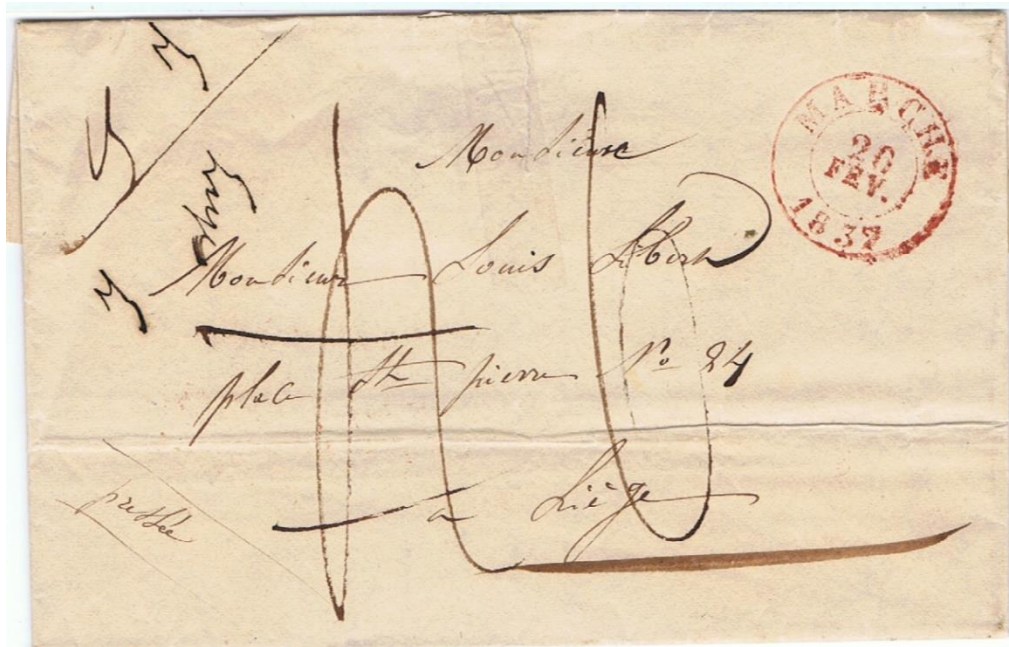 MARCHE
20
FEV.
1837
Monsieur
Monsieur Louis Libert
place St pierre No 24
a Liége
pressée